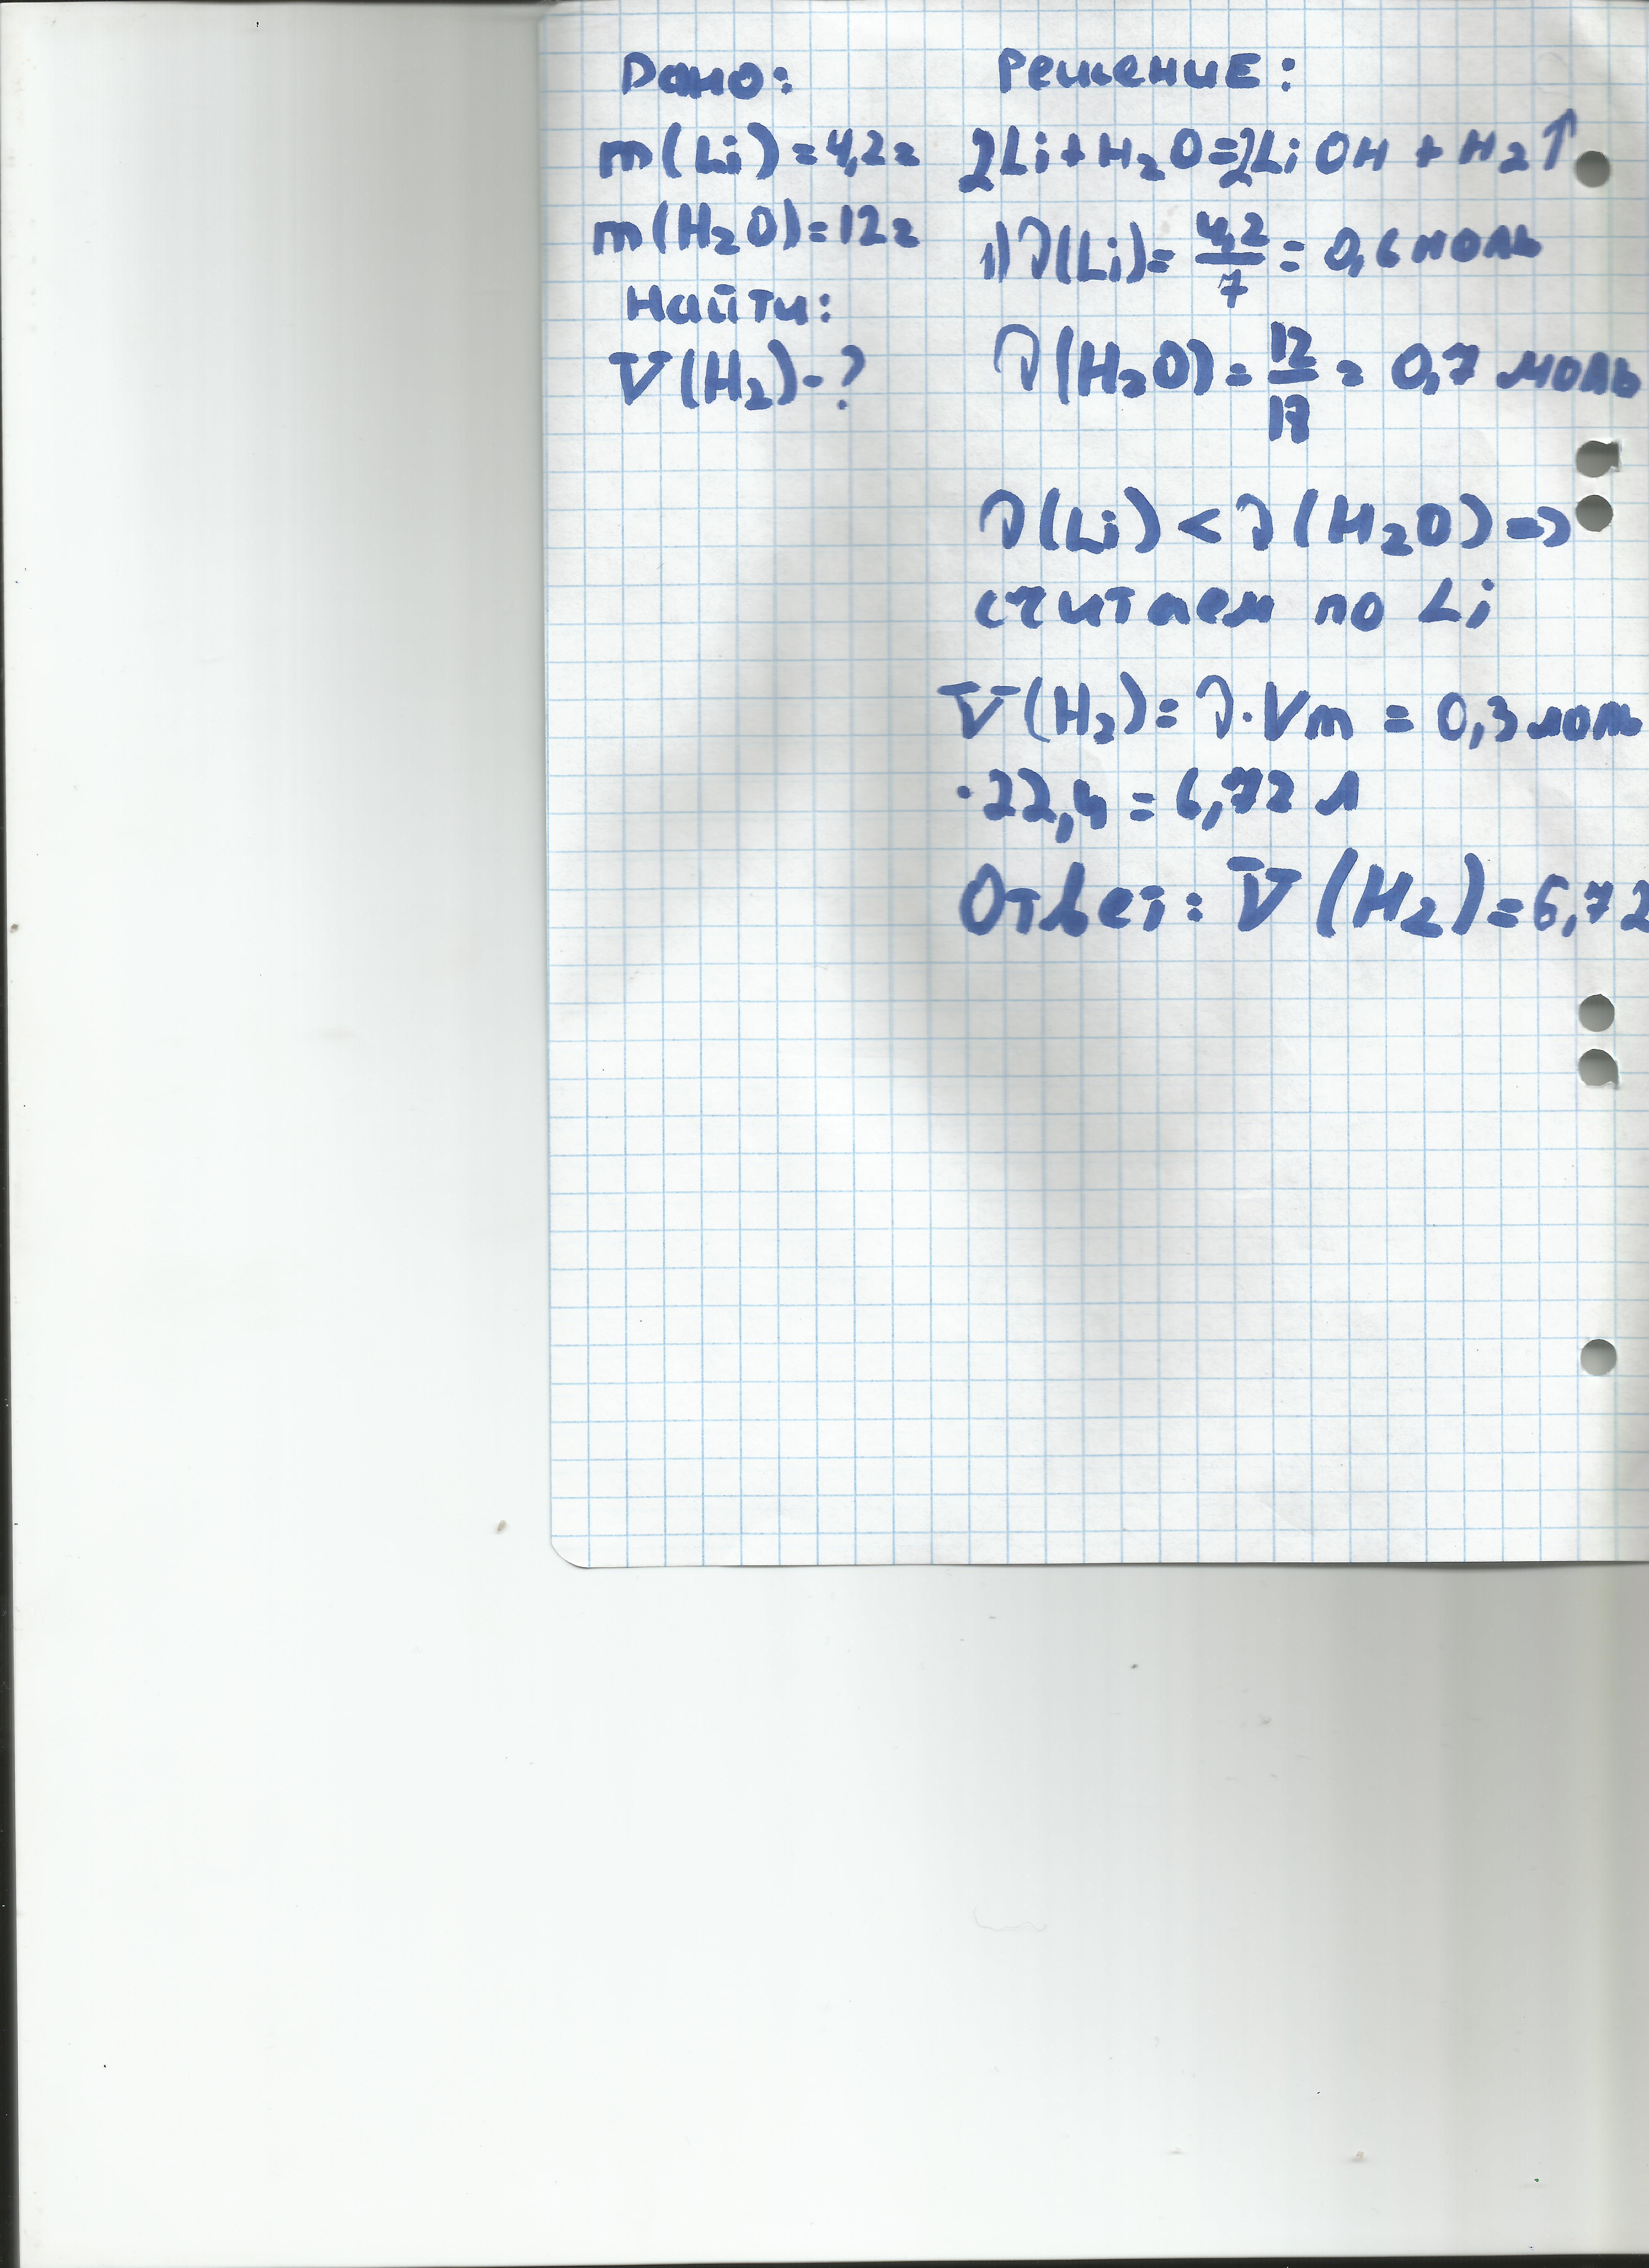 Дано:
m(Li)=4,2г
m(H₂O)=12г
Найти:
V(H₂)-?
Решение:
2Li+H₂O=2LiOH+H₂↑
1) ν(Li)=4,2/7=0,6 моль
ν(H₂O)=12/18=0,7 моль
ν(Li)<ν(H₂O)=>
считаем по Li
V(H₂)=ν·Vm=0,3 моль
·22,4=6,72 л
Ответ: V(H₂)=6,72